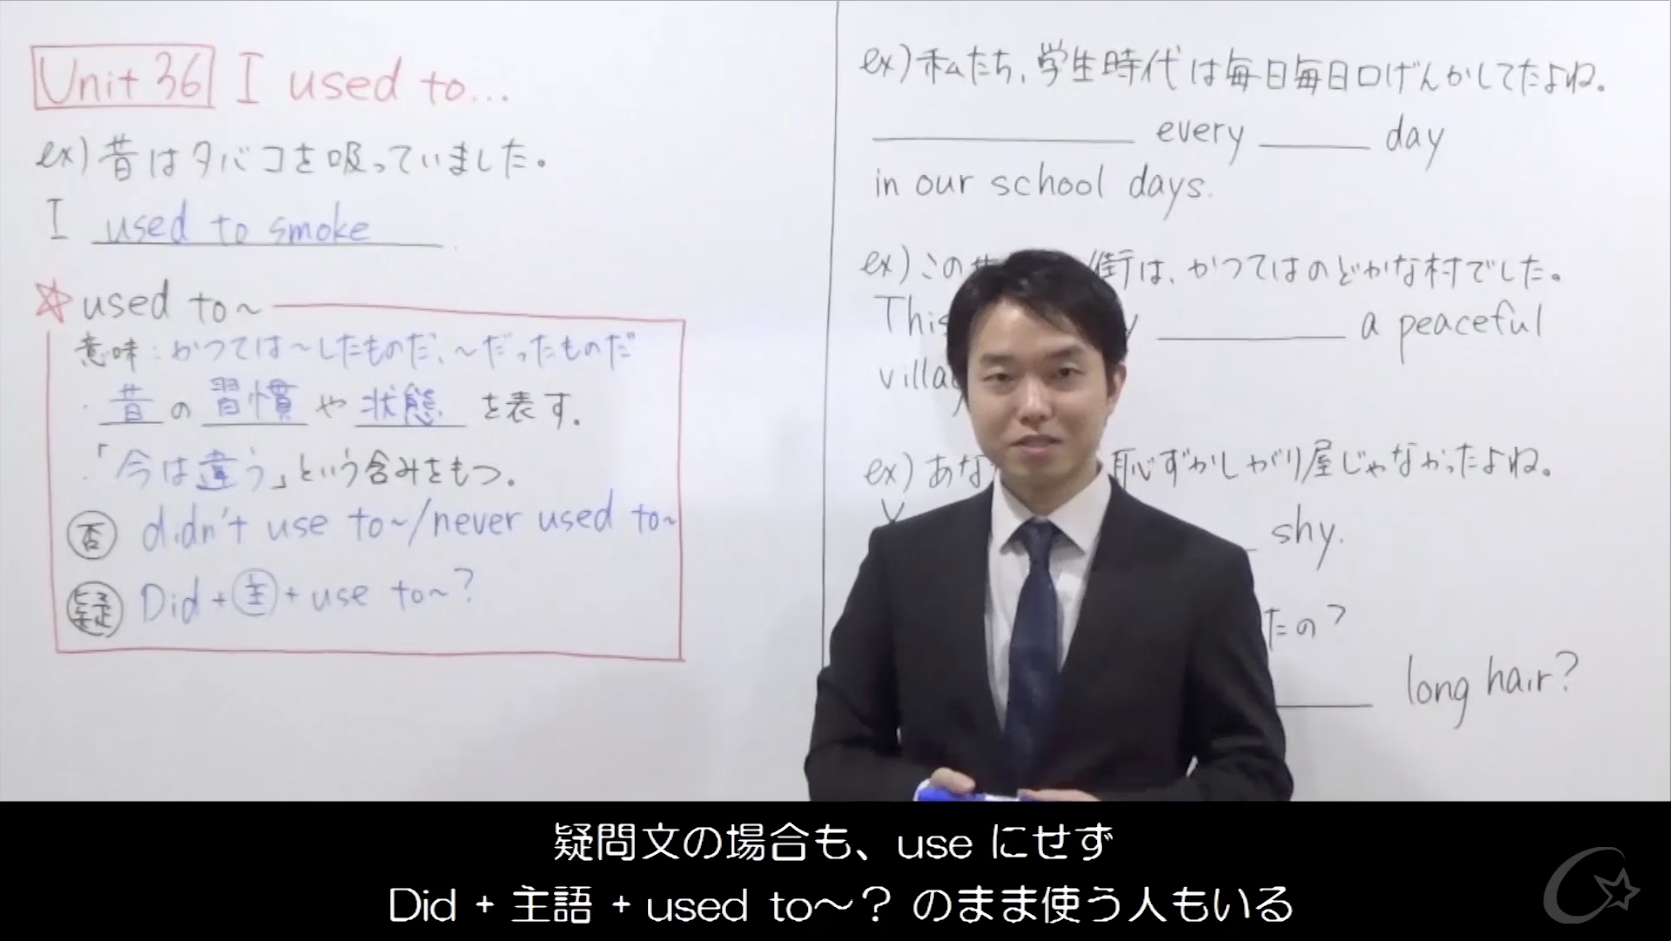 Unit 36 I used to...
ex) 昔はタバコを吸っていました。
I used to smoke.
☆used to~
意味:かつては~したものだ、~だったものだ
・昔の習慣や状態を表す。
・「今は違う」という含みをもつ。
否 didn't use to~/never used to~
疑 Did+主+use to~?
ex) 私たち、学生時代は毎日毎日口げんかしてたよね。
every day
in our school days.
ex) この 街は、かつてはのどかな村でした。
This a peaceful
ex) あな 恥ずかしがり屋じゃなかったよね。
shy.
たの?
long hair?
疑問文の場合も、use にせず
Did + 主語 + used to~? のまま使う人もいる